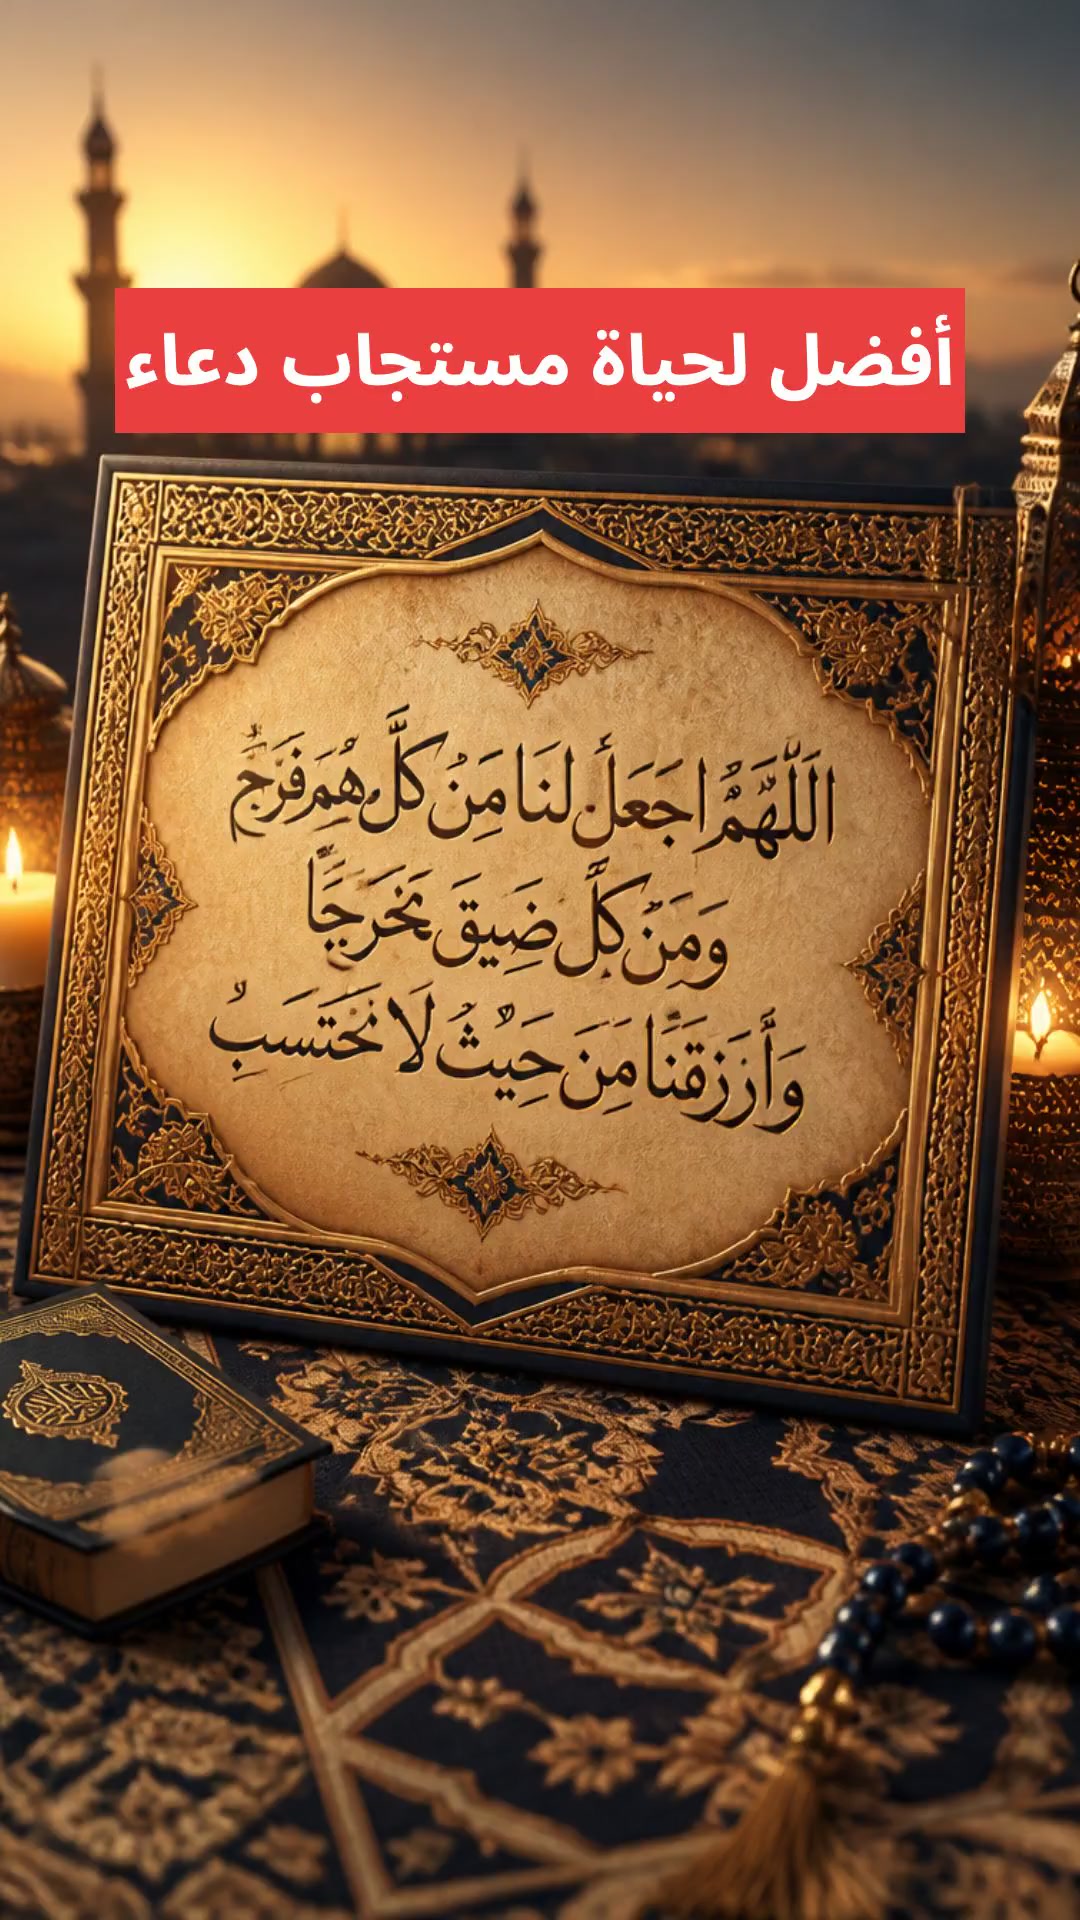 أفضل لحياة مستجاب دعاء
اللَّهُمَّ اجَعَلْ لنَا مَنُ كلَّ هُمَ فَرَجً
وَمَنْ كلَّ ضَيِقَ مَخَرَجَاً
وَأَرَزقَنَا مَنَ حَيْثُ لَا نَحَتَسَبُ